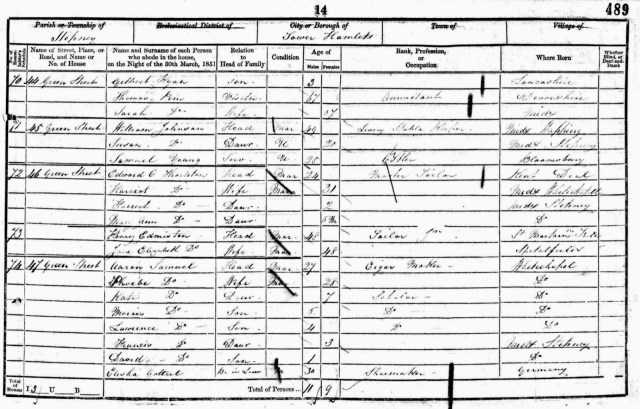 14
489
Parish or Township of Stepney
Ecclesiastical District of
City or Borough of Tower Hamlets
Town of
Village of
Name of Street, Place, or Road, and Name or No. of House
Name and Surname of each Person who abode in the house, on the Night of the 30th March, 1851
Relation to Head of Family
Condition
Age of
Males Females
Rank, Profession, or Occupation
Where Born
Whether Blind, or Deaf-and-Dumb
70 44 Green Street Gilbert Son 2 Lancashire
Thomas Visitor 67 Annuitant Devonshire
Sarah Do Wife 57 Middx
71 45 Green Street William Johnson Head Mar 49 Livery Stable Keeper Middx Wapping
Susan Do Daur Un 20 Middx Stepney
Samuel Young Serv Un 25 Ostler Bloomsbury
72 46 Green Street Edward C Head Mar 24 Master Tailor Kent Deal
Harriet Do Wife Mar 21 Middx Whitechapel
Harriet Do Daur 2 Middx Stepney
Mary Ann Do Daur Do
73 Henry Edmiston Head Mar 48 Tailor St Martins
Elizabeth Do Wife Mar 48 Spitalfields
74 47 Green Street Aaron Samuel Head Mar 27 Cigar Maker Whitechapel
Phoebe Do Wife Mar 28 Do
Kate Do Daur 7 Scholar Do
Morris Do Son 5 Do Do
Lawrence Do Son 4 Do Do
Francis Do Daur 3 Middx Stepney
David Do Son 1 Do
Elisha Br in Law 30 Germany
Total of Houses I 3 U B Total of Persons 11 9